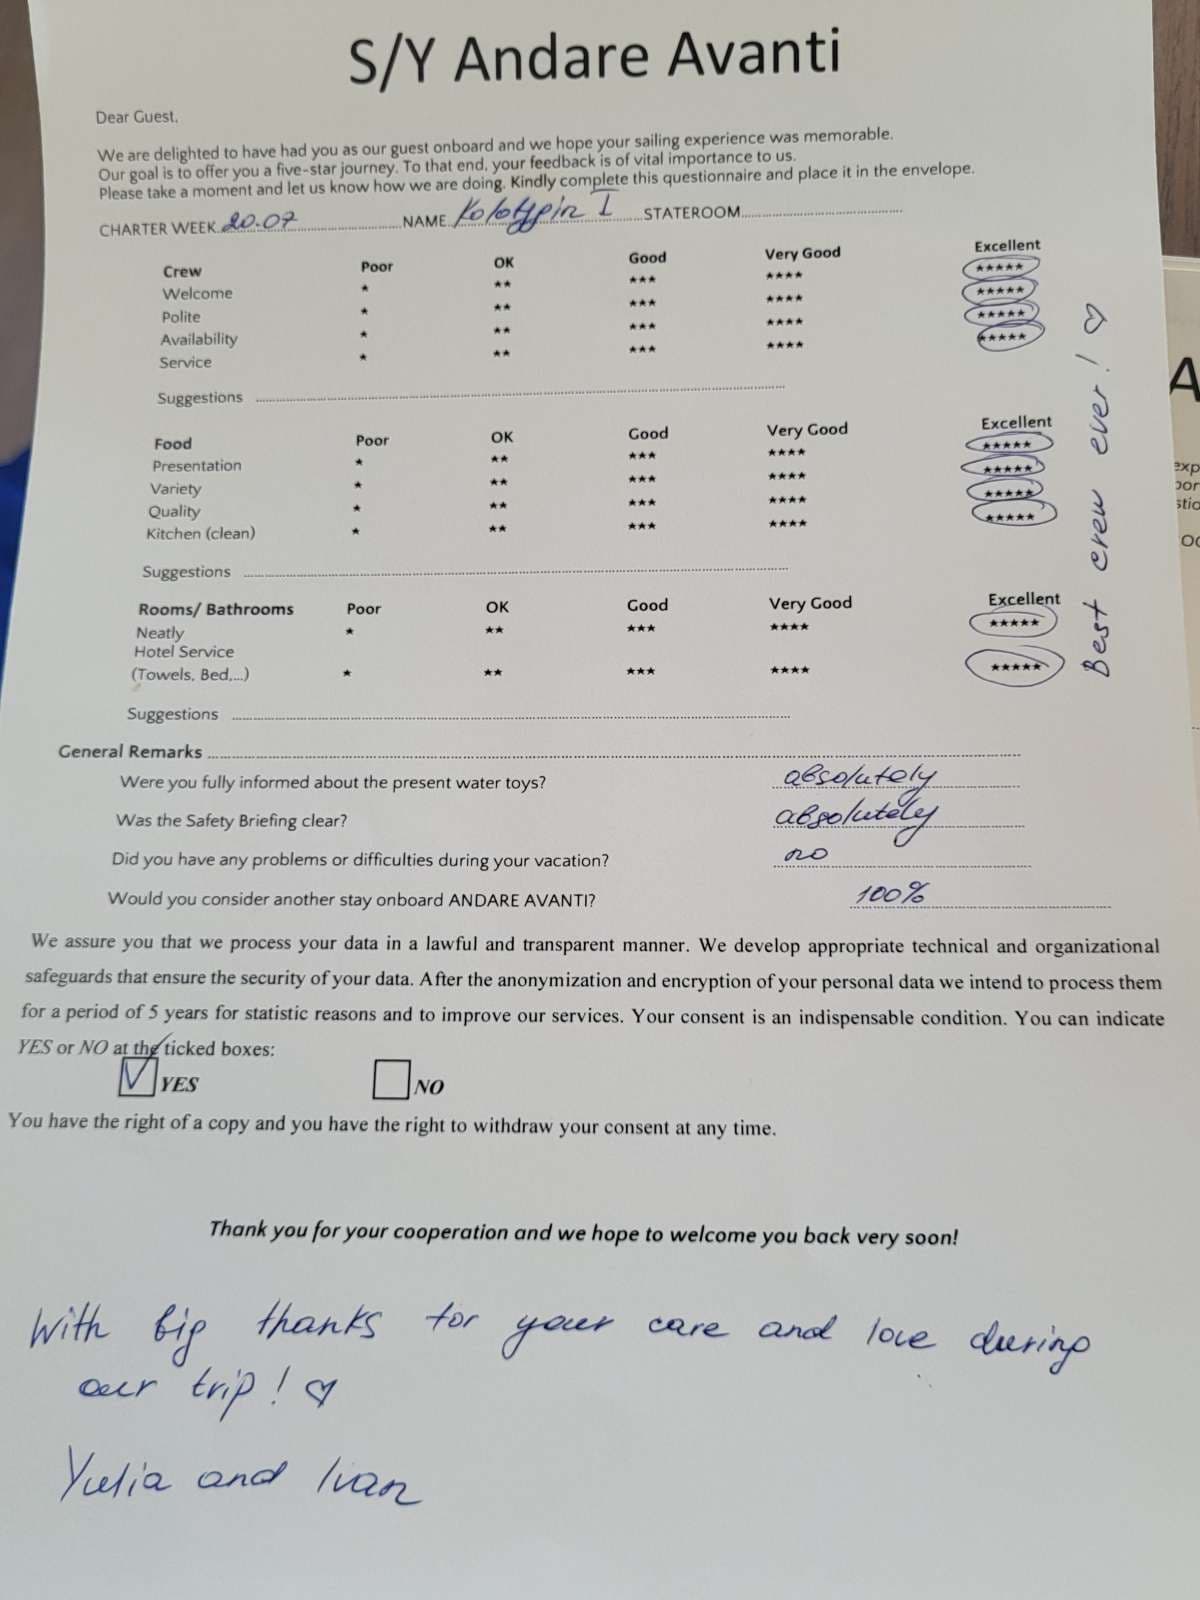 S/Y Andare Avanti
Dear Guest,
We are delighted to have had you as our guest onboard and we hope your sailing experience was memorable.
Our goal is to offer you a five-star journey. To that end, your feedback is of vital importance to us.
Please take a moment and let us know how we are doing. Kindly complete this questionnaire and place it in the envelope.
CHARTER WEEK 20.07 NAME Kolotypin I STATEROOM
Crew Poor OK Good Very Good Excellent
Welcome * ** *** **** *****
Polite * ** *** **** *****
Availability * ** *** **** *****
Service * ** *** **** *****
Suggestions
Food Poor OK Good Very Good Excellent
Presentation * ** *** **** *****
Variety * ** *** **** *****
Quality * ** *** **** *****
Kitchen (clean) * ** *** **** *****
Suggestions
Rooms/ Bathrooms Poor OK Good Very Good Excellent
Neatly * ** *** **** *****
Hotel Service
(Towels, Bed,...) * ** *** **** *****
Suggestions
Best crew ever! ♡
General Remarks
Were you fully informed about the present water toys? absolutely
Was the Safety Briefing clear? absolutely
Did you have any problems or difficulties during your vacation? no
Would you consider another stay onboard ANDARE AVANTI? 100%
We assure you that we process your data in a lawful and transparent manner. We develop appropriate technical and organizational
safeguards that ensure the security of your data. After the anonymization and encryption of your personal data we intend to process them
for a period of 5 years for statistic reasons and to improve our services. Your consent is an indispensable condition. You can indicate
YES or NO at the ticked boxes:
YES NO
You have the right of a copy and you have the right to withdraw your consent at any time.
Thank you for your cooperation and we hope to welcome you back very soon!
With big thanks for your care and love during
our trip! ♡
Yulia and Ivan